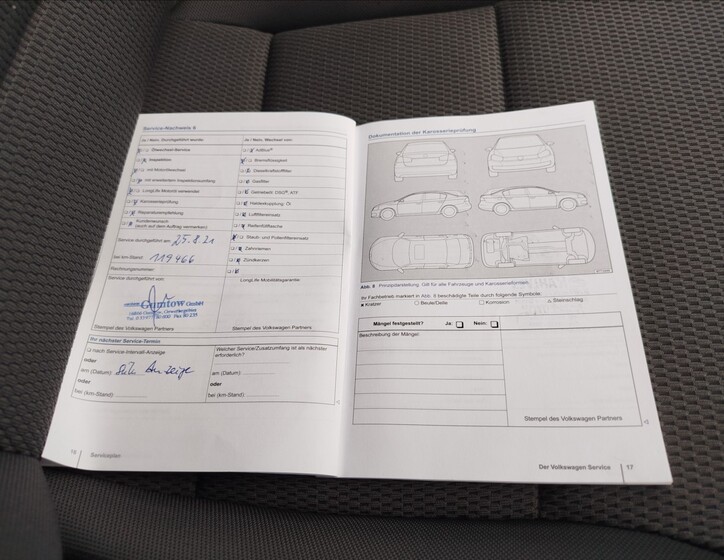 Service-Nachweis 6
Ja / Nein, Durchgeführt wurde:
Ölwechsel-Service
Inspektion
mit Motorölwechsel
mit erweitertem Inspektionsumfang
LongLife Motoröl verwendet
Karosserieprüfung
Reparaturempfehlung
Kundenwunsch
(auch auf dem Auftrag vermerken)
Service durchgeführt am: 25.8.21
bei km-Stand: 119466
Rechnungsnummer:
Service durchgeführt von:
Gumtow GmbH
Stempel des Volkswagen Partners
Ja / Nein, Wechsel von:
AdBlue®
Bremsflüssigkeit
Dieselkraftstofffilter
Gasfilter
Getriebeöl, DSG®, ATF
Haldexkupplung - Öl
Luftfiltereinsatz
Reifenfüllflasche
Staub- und Pollenfiltereinsatz
Zahnriemen
Zündkerzen
LongLife Mobilitätsgarantie:
Stempel des Volkswagen Partners
Ihr nächster Service-Termin
nach Service-Intervall-Anzeige
oder
am (Datum): Siehe Anzeige
oder
bei (km-Stand):
Welcher Service/Zusatzumfang ist als nächster
erforderlich?
am (Datum):
oder
bei (km-Stand):
16 Serviceplan
Dokumentation der Karosserieprüfung
Abb. 8 Prinzipdarstellung: Gilt für alle Fahrzeuge und Karosserieformen.
Ihr Fachbetrieb markiert in Abb. 8 beschädigte Teile durch folgende Symbole:
Kratzer Beule/Delle Korrosion Steinschlag
Mängel festgestellt? Ja: Nein:
Beschreibung der Mängel:
Stempel des Volkswagen Partners
Der Volkswagen Service 17